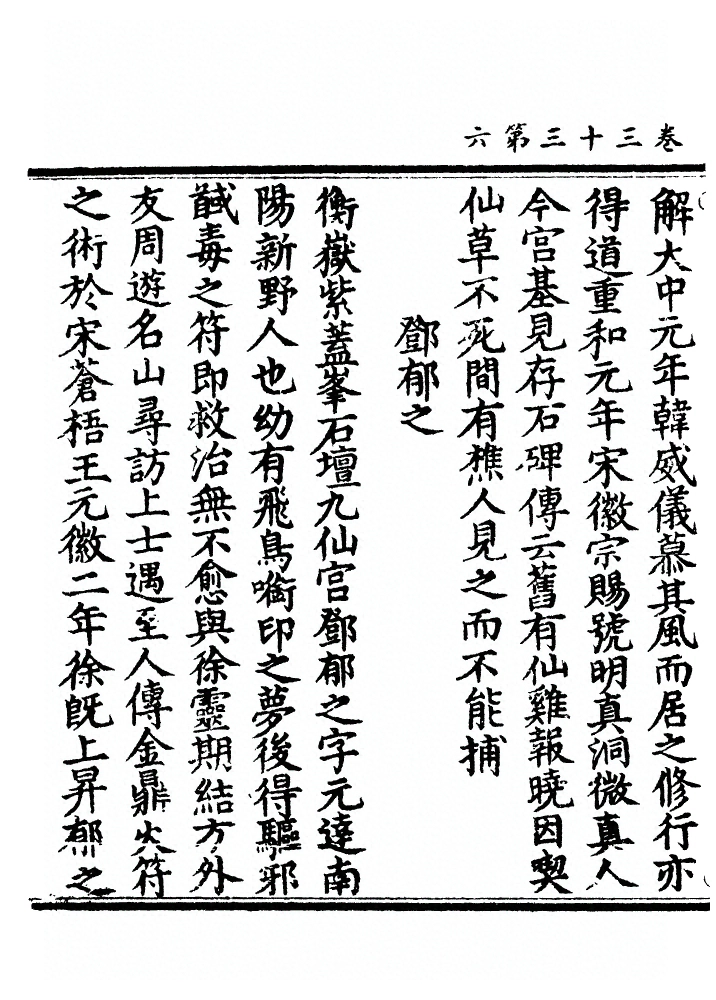 卷三十三第六
解大中元年韓威儀慕其風而居之修行亦
得道重和元年宋徽宗賜號明真洞微真人
今宫基見存石碑傳云舊有仙雞報曉因喫
仙草不死間有樵人見之而不能捕
鄧郁之
衡嶽紫蓋峯石壇九仙宫鄧郁之字元達南
陽新野人也幼有飛鳥啣印之夢後得驅邪
馘毒之符即救治無不愈與徐靈期結方外
友周遊名山尋訪上士遇至人傳金鼎火符
之術於宋蒼梧王元徽二年徐既上昇郁之